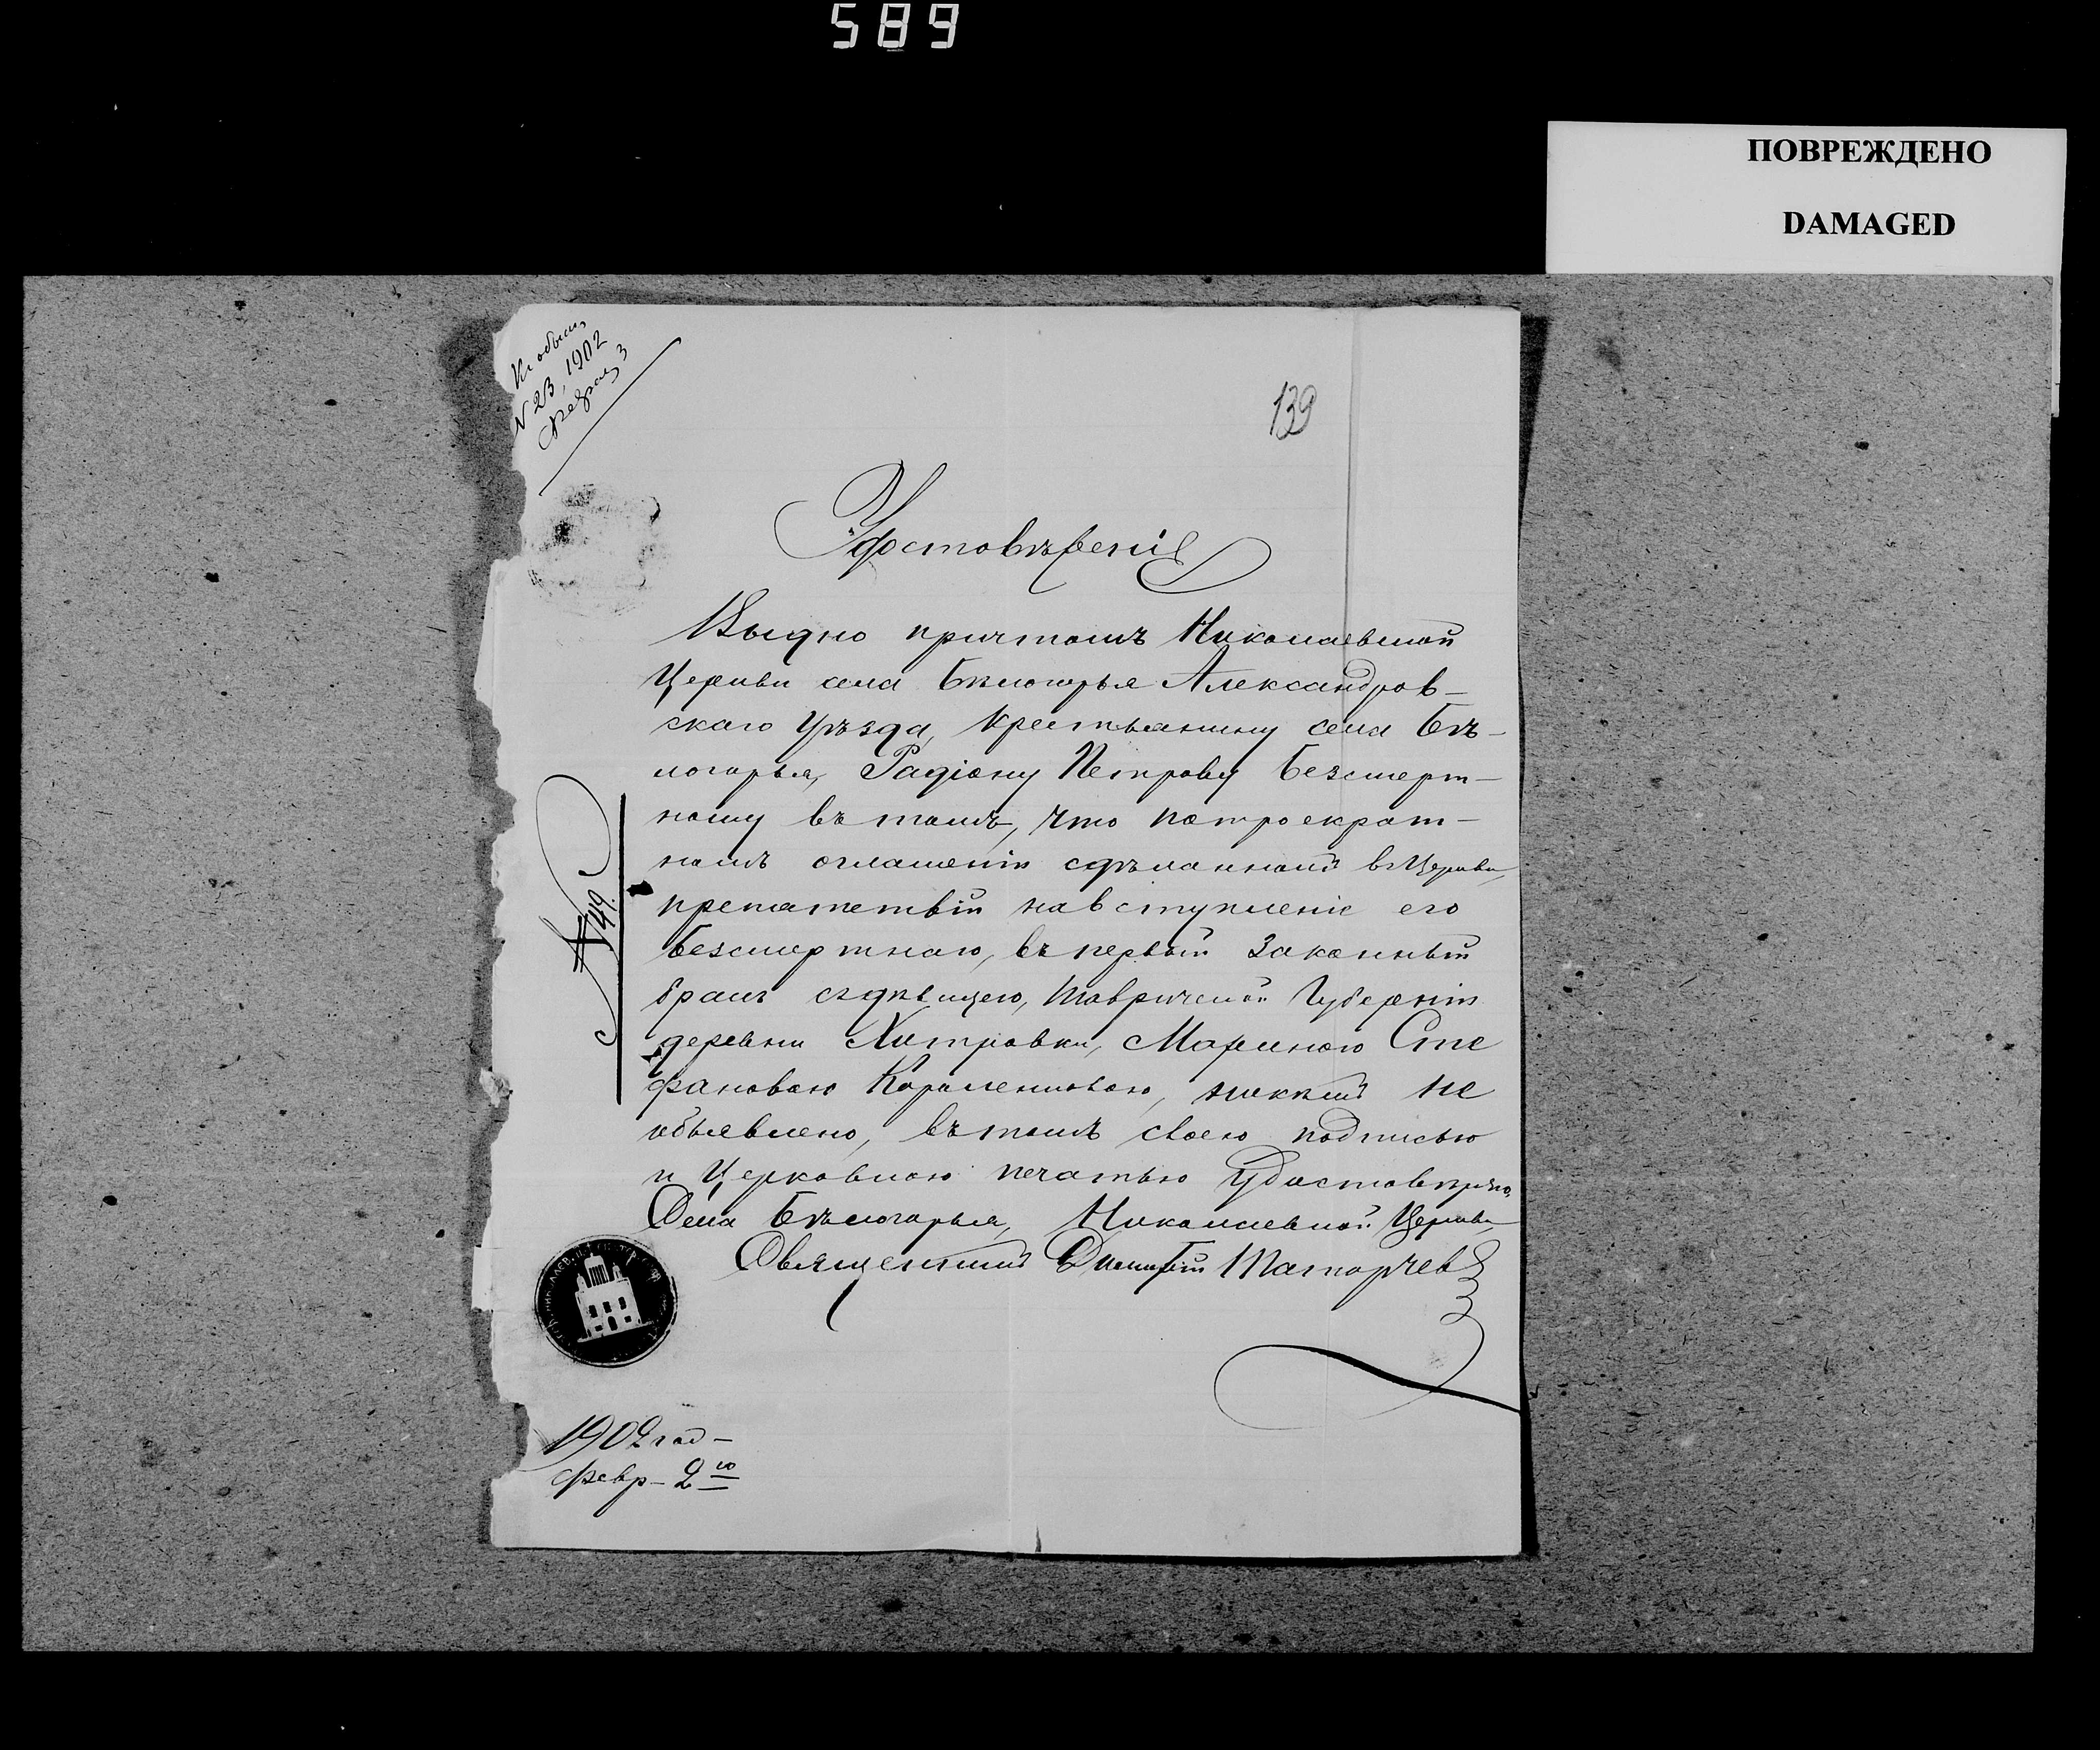 589
ПОВРЕЖДЕНО
DAMAGED
Къ обыск
N 23, 1902
Февраля 3
139
Удостовѣреніе
Выдно причтомъ Николаевской
Церкви села Бѣлогорья Александров-
скаго Уѣзда, крестьянину села Бѣ-
логорья, Радіону Петрову Безсмерт-
ному въ томъ, что потроекрат-
номъ оглашеніи сдѣланномъ въ Церкви,
препятствій навступленіе его
Безсмертнаго, въ первый законный
бракъ съ дѣвицею, Таврической Губерніи
деревни Хитровки, Мариною Сте
фановою Короленковою, никѣмъ не
объявлено, въ томъ своею подписью
и Церковною печатью удостовѣряю.
Села Бѣлогорья, Николаевской Церкви
Священникъ Димитрій Таторчевъ
N 49.
1902 год-
февр- 2 го